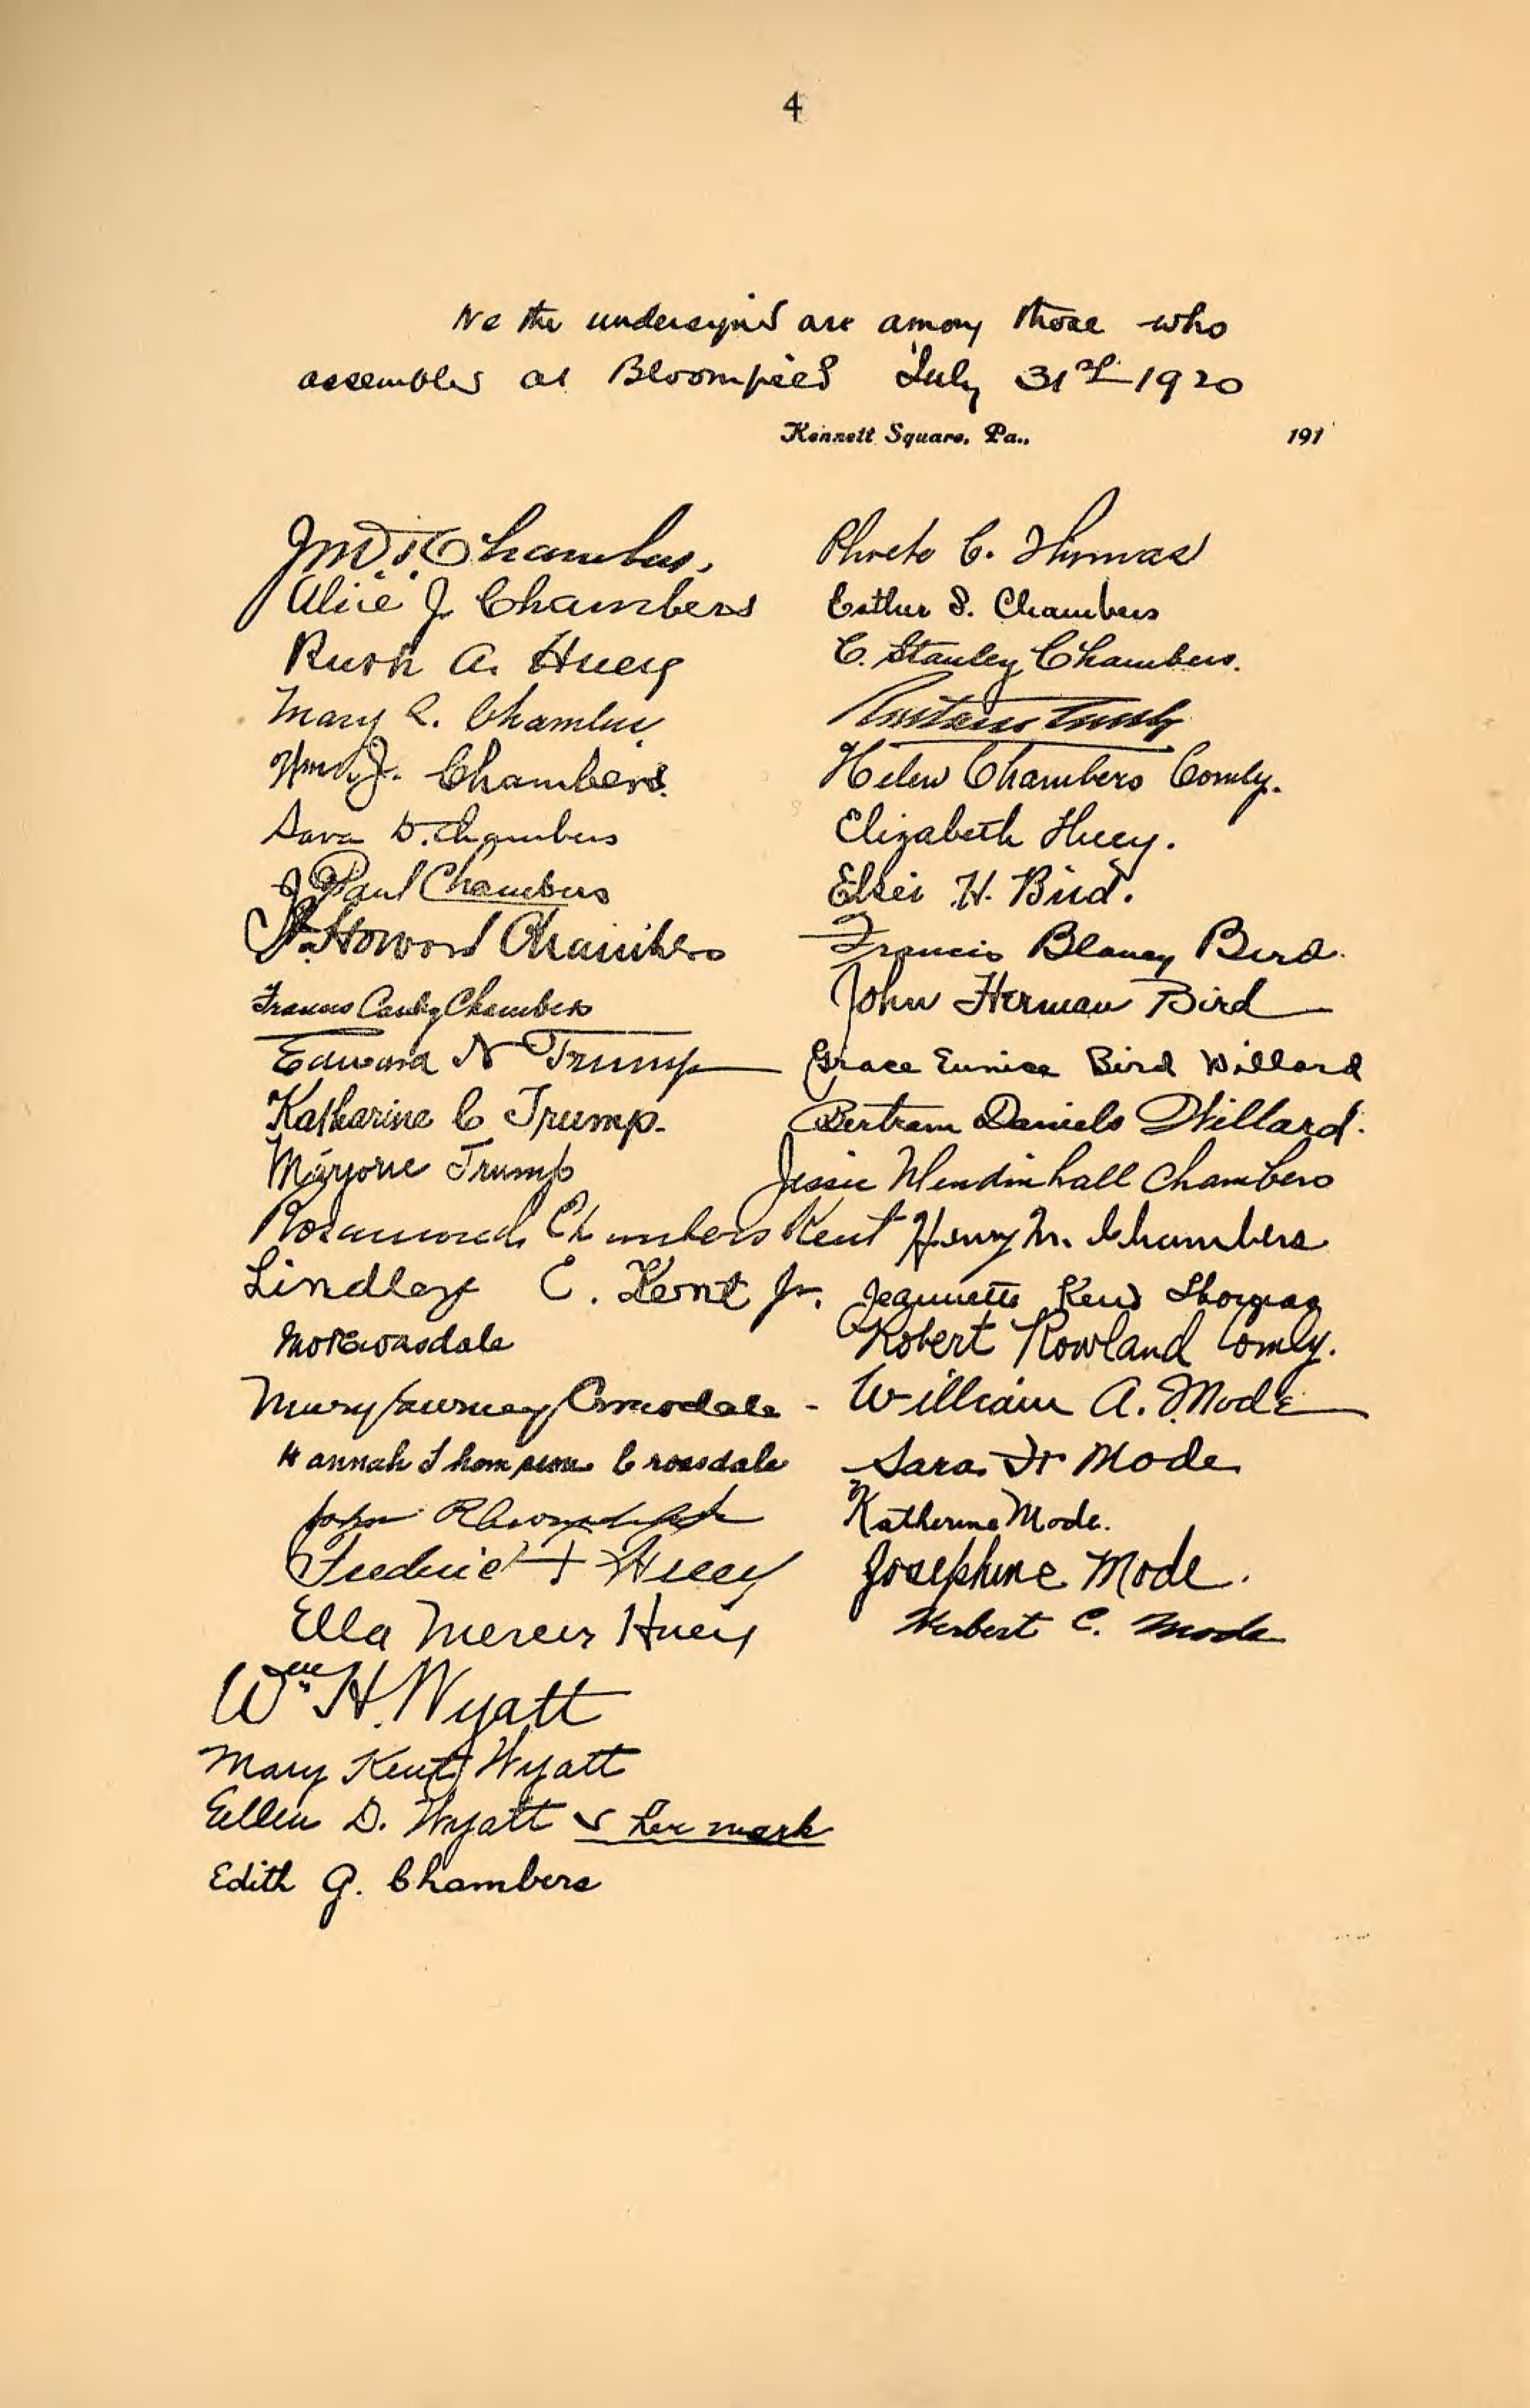 4
We the undersigned are among those who
assembled at Bloomfield July 31st 1920
Kennett Square, Pa., 191
Chambers.
Alice J Chambers
Rush A. Huey
Mary R. Chambers
Wm J. Chambers.
Sara D. Chambers
J Paul Chambers
J. Howard Chambers
Frances Canby Chambers
Edward N Trump
Katharine C Trump.
Marjorie Trump
Rosamond Chambers Kent
Lindley C. Kent Jr.
Croasdale
Mary Gurney Croasdale -
Hannah Thompson Croasdale
John
Frederic Huey
Ella Mercer Huey
Wm H. Wyatt
Mary Kent Wyatt
Ellen D. Wyatt her mark
Edith G. Chambers
C. Thomas
Esther S. Chambers
C. Stanley Chambers.
Helen Chambers Comly.
Elizabeth Huey.
Elsie H. Bird.
Francis Blaney Bird.
John Herman Bird
Grace Eunice Bird Willard
Bertram Daniels Willard.
Jessie Mendinhall Chambers
Henry M. Chambers
Jeannette
Robert Rowland Comly.
William A. Mode
Sara H Mode
Katherine Mode.
Josephine Mode.
Herbert C. Mode